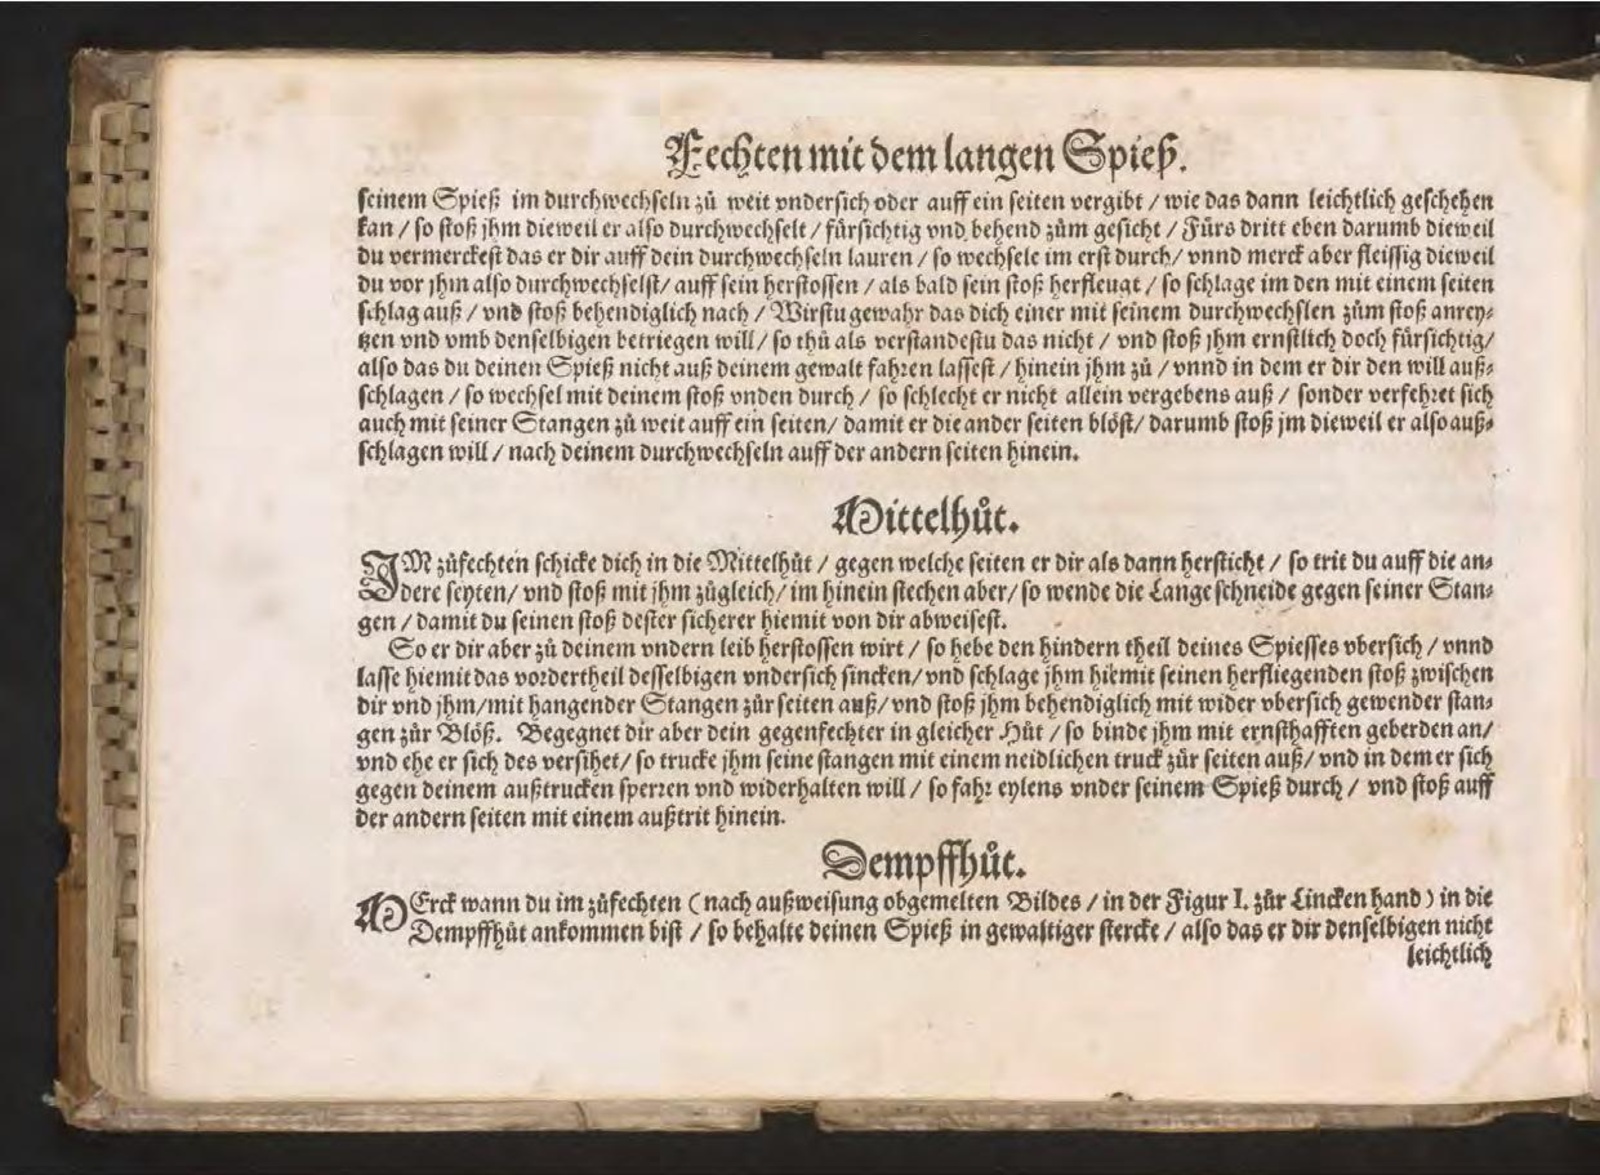 Fechten mit dem langen Spieß.
seinem Spieß im durchwechseln zů weit vndersich oder auff ein seiten vergibt / wie das dann leichtlich geschehen
kan / so stoß jhm dieweil er also durchwechselt / fürsichtig vnd behend zům gesicht / Fürs dritt eben darumb dieweil
du vermerckest das er dir auff dein durchwechseln lauren / so wechsele im erst durch / vnnd merck aber fleissig dieweil
du vor jhm also durchwechselst / auff sein herstossen / als bald sein stoß herfleugt / so schlage im den mit einem seiten
schlag auß / vnd stoß behendiglich nach / Wirstu gewahr das dich einer mit seinem durchwechslen zům stoß anrey⸗
tzen vnd vmb denselbigen betriegen will / so thů als verstandestu das nicht / vnd stoß jhm ernstlich doch fürsichtig /
also das du deinen Spieß nicht auß deinem gewalt fahren lassest / hinein jhm zů / vnnd in dem er dir den will auß⸗
schlagen / so wechsel mit deinem stoß vnden durch / so schlecht er nicht allein vergebens auß / sonder verfehret sich
auch mit seiner Stangen zů weit auff ein seiten / damit er die ander seiten blöst / darumb stoß jm dieweil er also auß⸗
schlagen will / nach deinem durchwechseln auff der andern seiten hinein.
Mittelhůt.
IM zůfechten schicke dich in die Mittelhůt / gegen welche seiten er dir als dann hersticht / so trit du auff die an⸗
dere seyten / vnd stoß mit jhm zůgleich / im hinein stechen aber / so wende die Lange schneide gegen seiner Stan⸗
gen / damit du seinen stoß dester sicherer hiemit von dir abweisest.
So er dir aber zů deinem vndern leib herstossen wirt / so hebe den hindern theil deines Spiesses vbersich / vnnd
lasse hiemit das vordertheil desselbigen vndersich sincken / vnd schlage jhm hiemit seinen herfliegenden stoß zwischen
dir vnd jhm / mit hangender Stangen zůr seiten auß / vnd stoß jhm behendiglich mit wider vbersich gewender stan⸗
gen zůr Blöß. Begegnet dir aber dein gegenfechter in gleicher Hůt / so binde jhm mit ernsthafften geberden an /
vnd ehe er sich des versihet / so trucke jhm seine stangen mit einem neidlichen truck zůr seiten auß / vnd in dem er sich
gegen deinem außtrucken sperren vnd widerhalten will / so fahr eylens vnder seinem Spieß durch / vnd stoß auff
der andern seiten mit einem außtrit hinein.
Dempffhůt.
MErck wann du im zůfechten (nach außweisung obgemelten Bildes / in der Figur I. zůr Lincken hand) in die
Dempffhůt ankommen bist / so behalte deinen Spieß in gewaltiger stercke / also das er dir denselbigen nicht
leichtlich